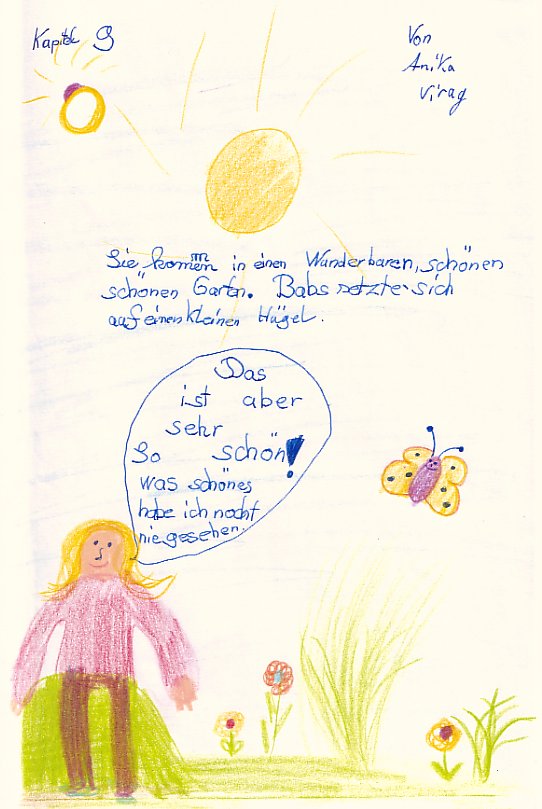 Kapitel 9
Von
Anika
Virag
Sie kommen in einen Wanderbaren, schönen
schönen Garten. Babs setzte sich
auf einen kleinen Hügel.
Das
ist aber
sehr
schön!
So
was schönes
habe ich nocht
nie gesehen.